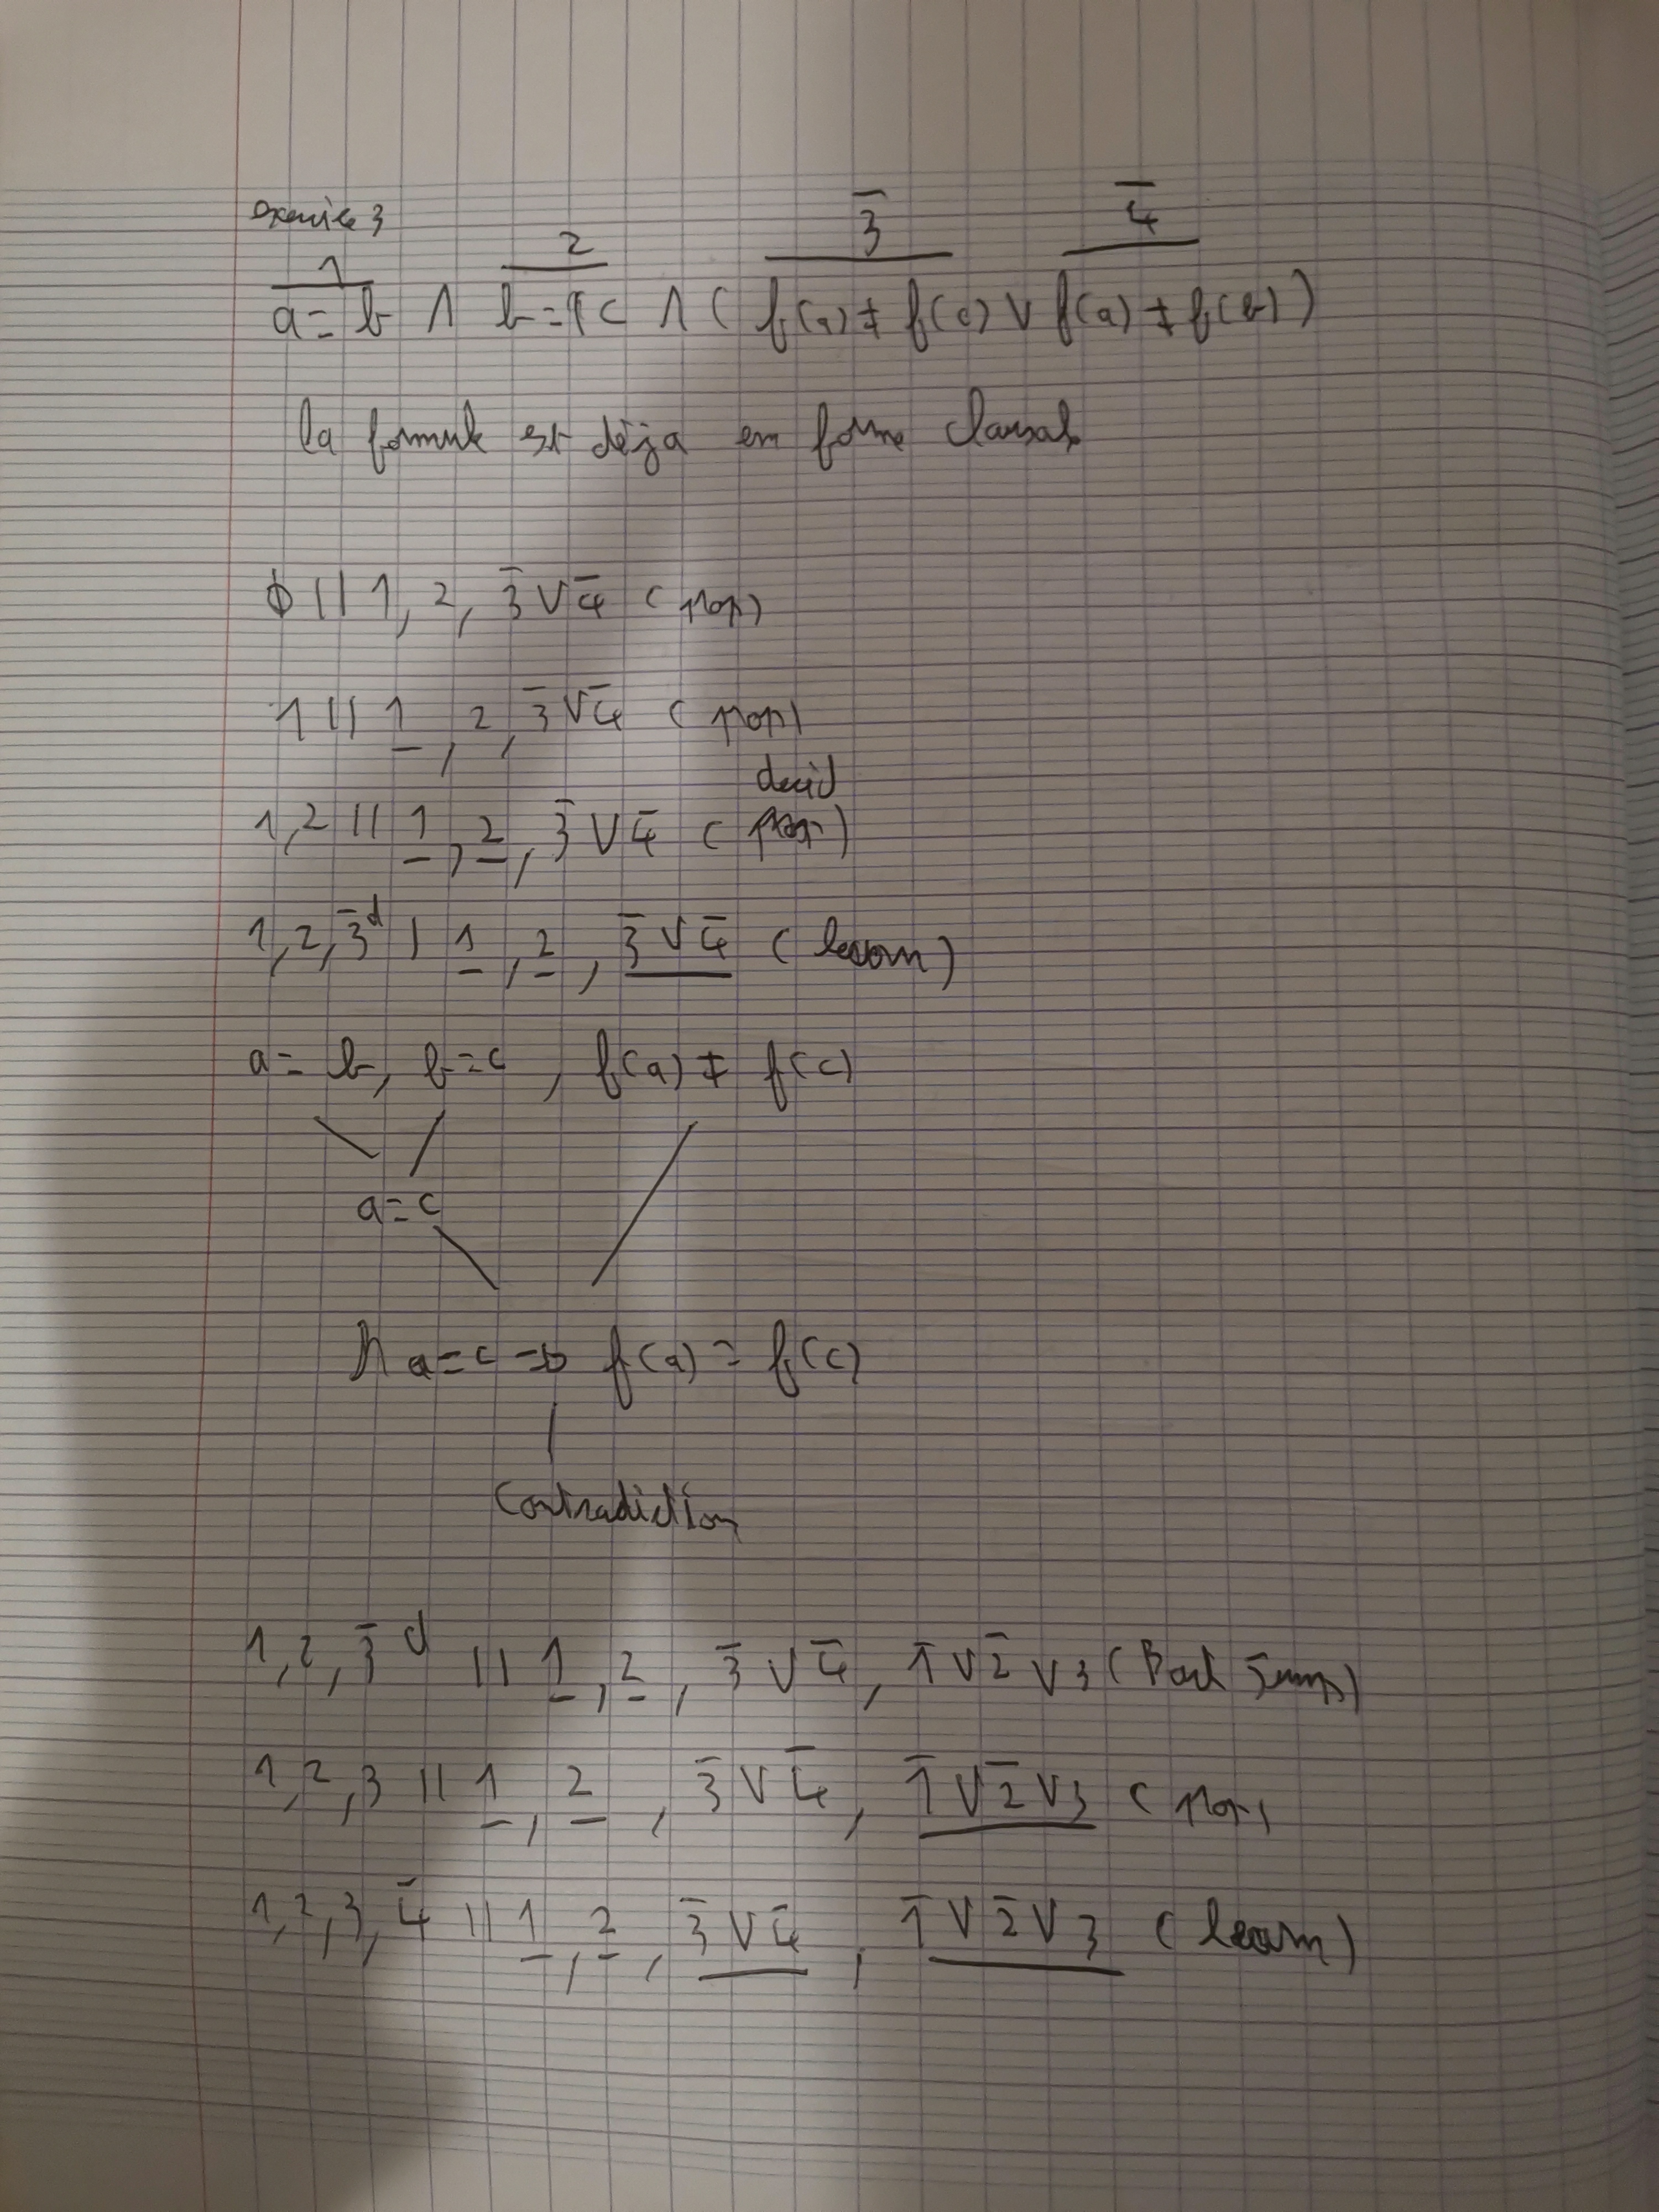 Exercice 3
1 2 3̅ 4̅
a = b ∧ b = c ∧ ( f(a) ≠ f(c) ∨ f(a) ≠ f(b) )
la formule est déja en forme clausale
∅ || 1, 2, 3̅ ∨ 4̅ ( prop )
1 || 1, 2, 3̅ ∨ 4̅ ( prop )
decid
1,2 || 1, 2, 3̅ ∨ 4̅ ( )
1,2,3̅ᵈ | 1, 2, 3̅ ∨ 4̅ ( learn )
a = b, b = c, f(a) ≠ f(c)
a = c
a = c => f(a) = f(c)
Contradiction
1,2,3̅ d || 1, 2, 3̅ ∨ 4̅, 1̅ ∨ 2̅ ∨ 3 ( Back Jump )
1,2,3 || 1, 2, 3̅ ∨ 4̅, 1̅ ∨ 2̅ ∨ 3 ( prop )
1,2,3,4̅ || 1, 2, 3̅ ∨ 4̅, 1̅ ∨ 2̅ ∨ 3 ( learn )